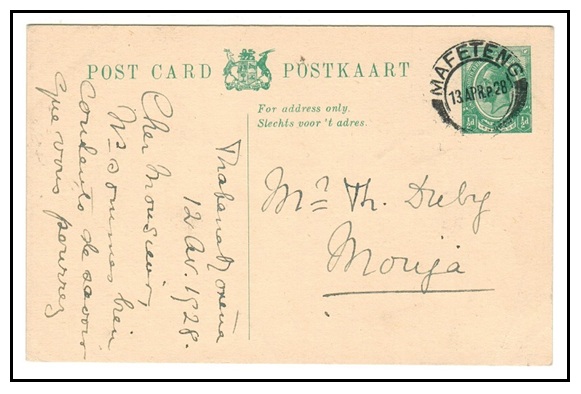 POST CARD POSTKAART
For address only.
Slechts voor 't adres.
MAFETENG
13 APR 28
½d
Thabana Morena
12 Av. 1928.
Cher Monsieur,
Ns sommes bien
contents de savoir
que vous pourrez
Mr. Th. Dieby
Morija